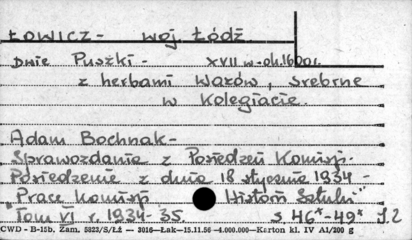 Łowicz - woj. Łódź.
Dwie Puszki - XVII w - ok. 1600 r.
z herbami Wazów, srebrne
w Kolegiacie.
Adam Bochnak -
Sprawozdania z Posiedzeń Komisji.
Posiedzenie z dnia 18 stycznia 1934 -
"Prace Komisji Historii Sztuki"
Tom VI r. 1934-35. s. 46*-49* J.2
CWD - B-15b. Zam. 5823/S/Łż — 3016—Łak—15.11.56 —4.000.000—Karton kl. IV A1/200 g